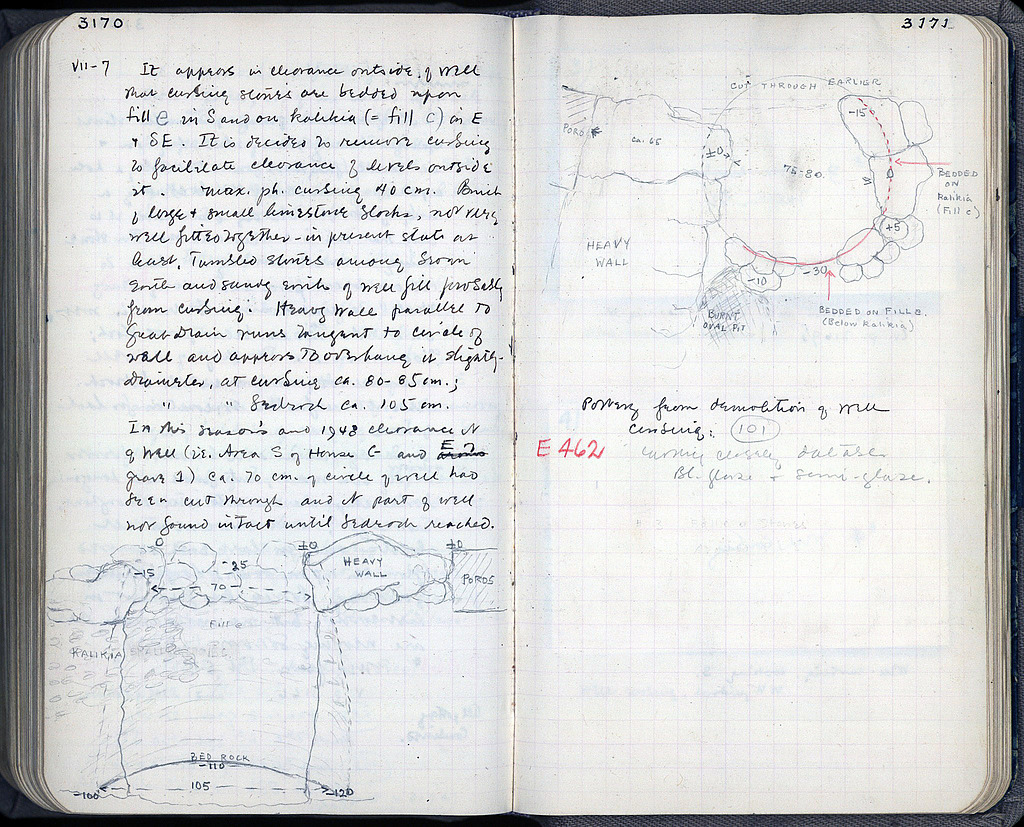 3170
VII-7 It appears in clearance outside of well
that curbing stones are bedded upon
fill e in S and on kalikia (= fill c) on E
+ SE. It is decided to remove curbing
to facilitate clearance of levels outside
it. max. ph. curbing 40 cm. Built
of large + small limestone blocks, not very
well fitted together - in present state at
least. Tumbled stones among brown
earth and sandy earth of well fill probably
from curbing. Heavy wall parallel to
Great Drain runs tangent to circle of
wall and appears to overhang it slightly.
diameter, at curbing ca. 80-85 cm.;
" " bedrock ca. 105 cm.
In this season's and 1948 clearance N
of well (i.e. Area S of House G and E of
grave 1) ca. 70 cm. of circle of well had
been cut through and N part of well
not found intact until bedrock reached.
0 ±0 ±0
-15 -25 HEAVY
WALL POROS
70
Fill e
KALIKIA
BED ROCK
-110
-100 105 -120
3171
CUT THROUGH EARLIER
-15
POROS ca. 65 ±0
75-80. 0
BEDDED
ON
Kalikia
(Fill c)
+5
HEAVY
WALL
-10 -30
BURNT
OVAL PIT
BEDDED ON FILL e.
(Below Kalikia)
Pottery from demolition of well
curbing: 101
E 462
Nothing closely datable
Bl. glaze + semi-glaze.